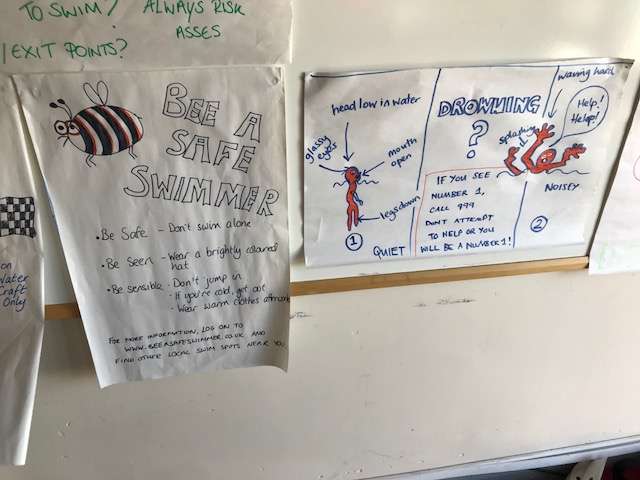 TO SWIM?
ALWAYS RISK
ASSES
/EXIT POINTS?
BEE A
SAFE
SWIMMER
• Be Safe - Don't swim alone
• Be Seen - Wear a brightly coloured
hat
• Be sensible - Don't jump in
- If you're cold, get out
- Wear warm clothes
FOR MORE INFORMATION, LOG ON TO
WWW.BEEASAFESWIMMER.CO.UK AND
FIND OTHER LOCAL SWIM SPOTS NEAR YOU
on
Water
Craft
Only
head low in water
glassy
eyes
mouth
open
legs down
1
QUIET
DROWNING
?
IF YOU SEE
NUMBER 1,
CALL 999
DONT ATTEMPT
TO HELP OR YOU
WILL BE A NUMBER 1!
waving hard
Help!
Helop!
splashing
NOISEY
2